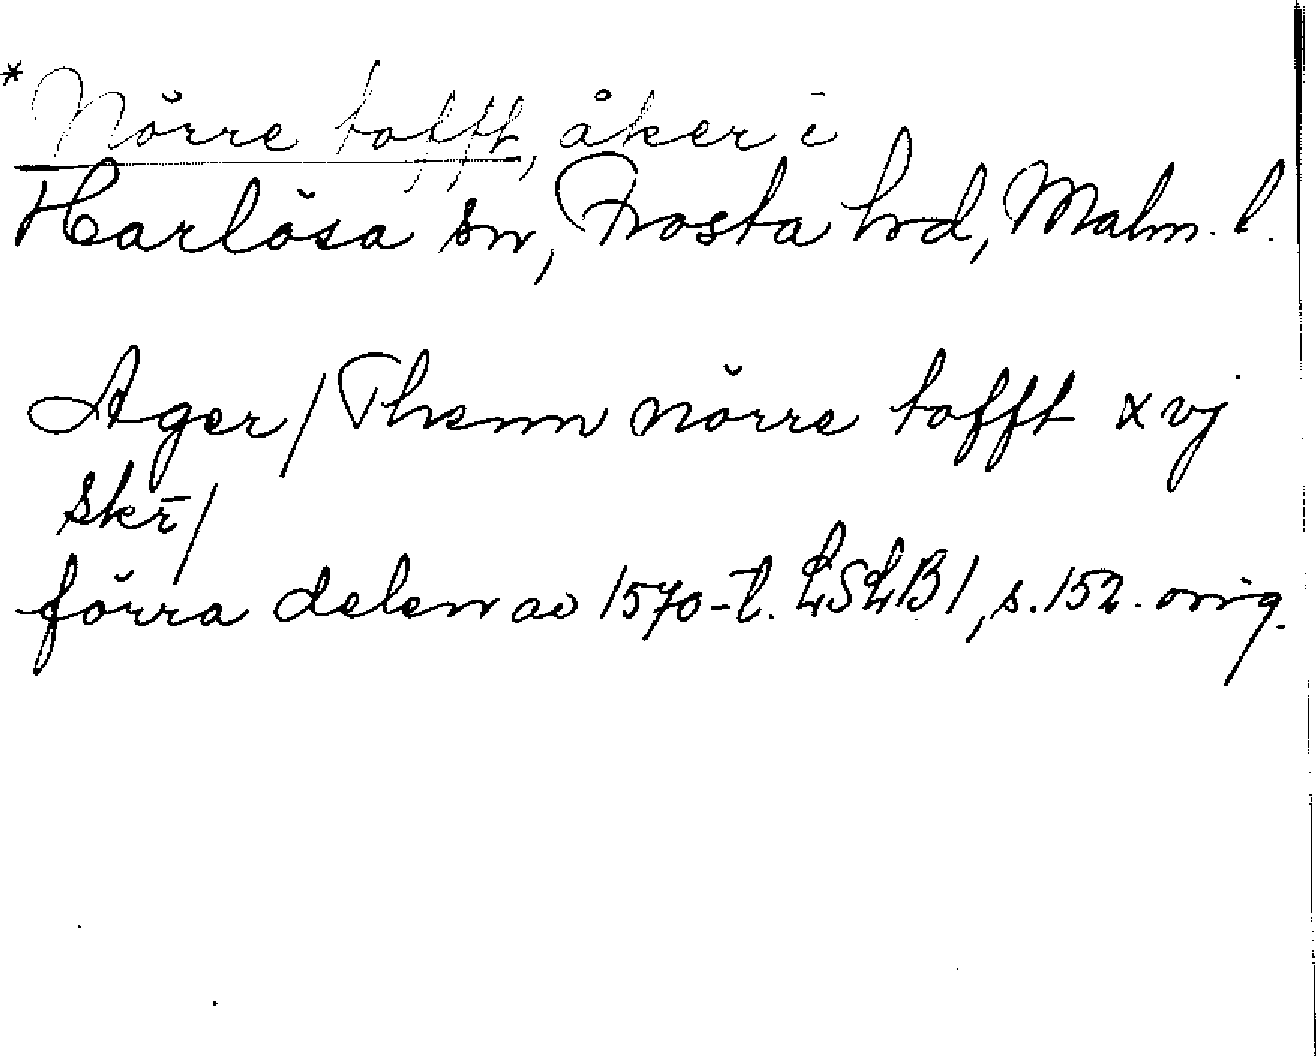 *Nörre tofft, åker i
Harlösa sn, Frosta hd, Malm. l.
Ager / Thenn nörre tofft xvj
skr̄ /
förra delen av 1570-t. LSLB 1, s. 152. orig.